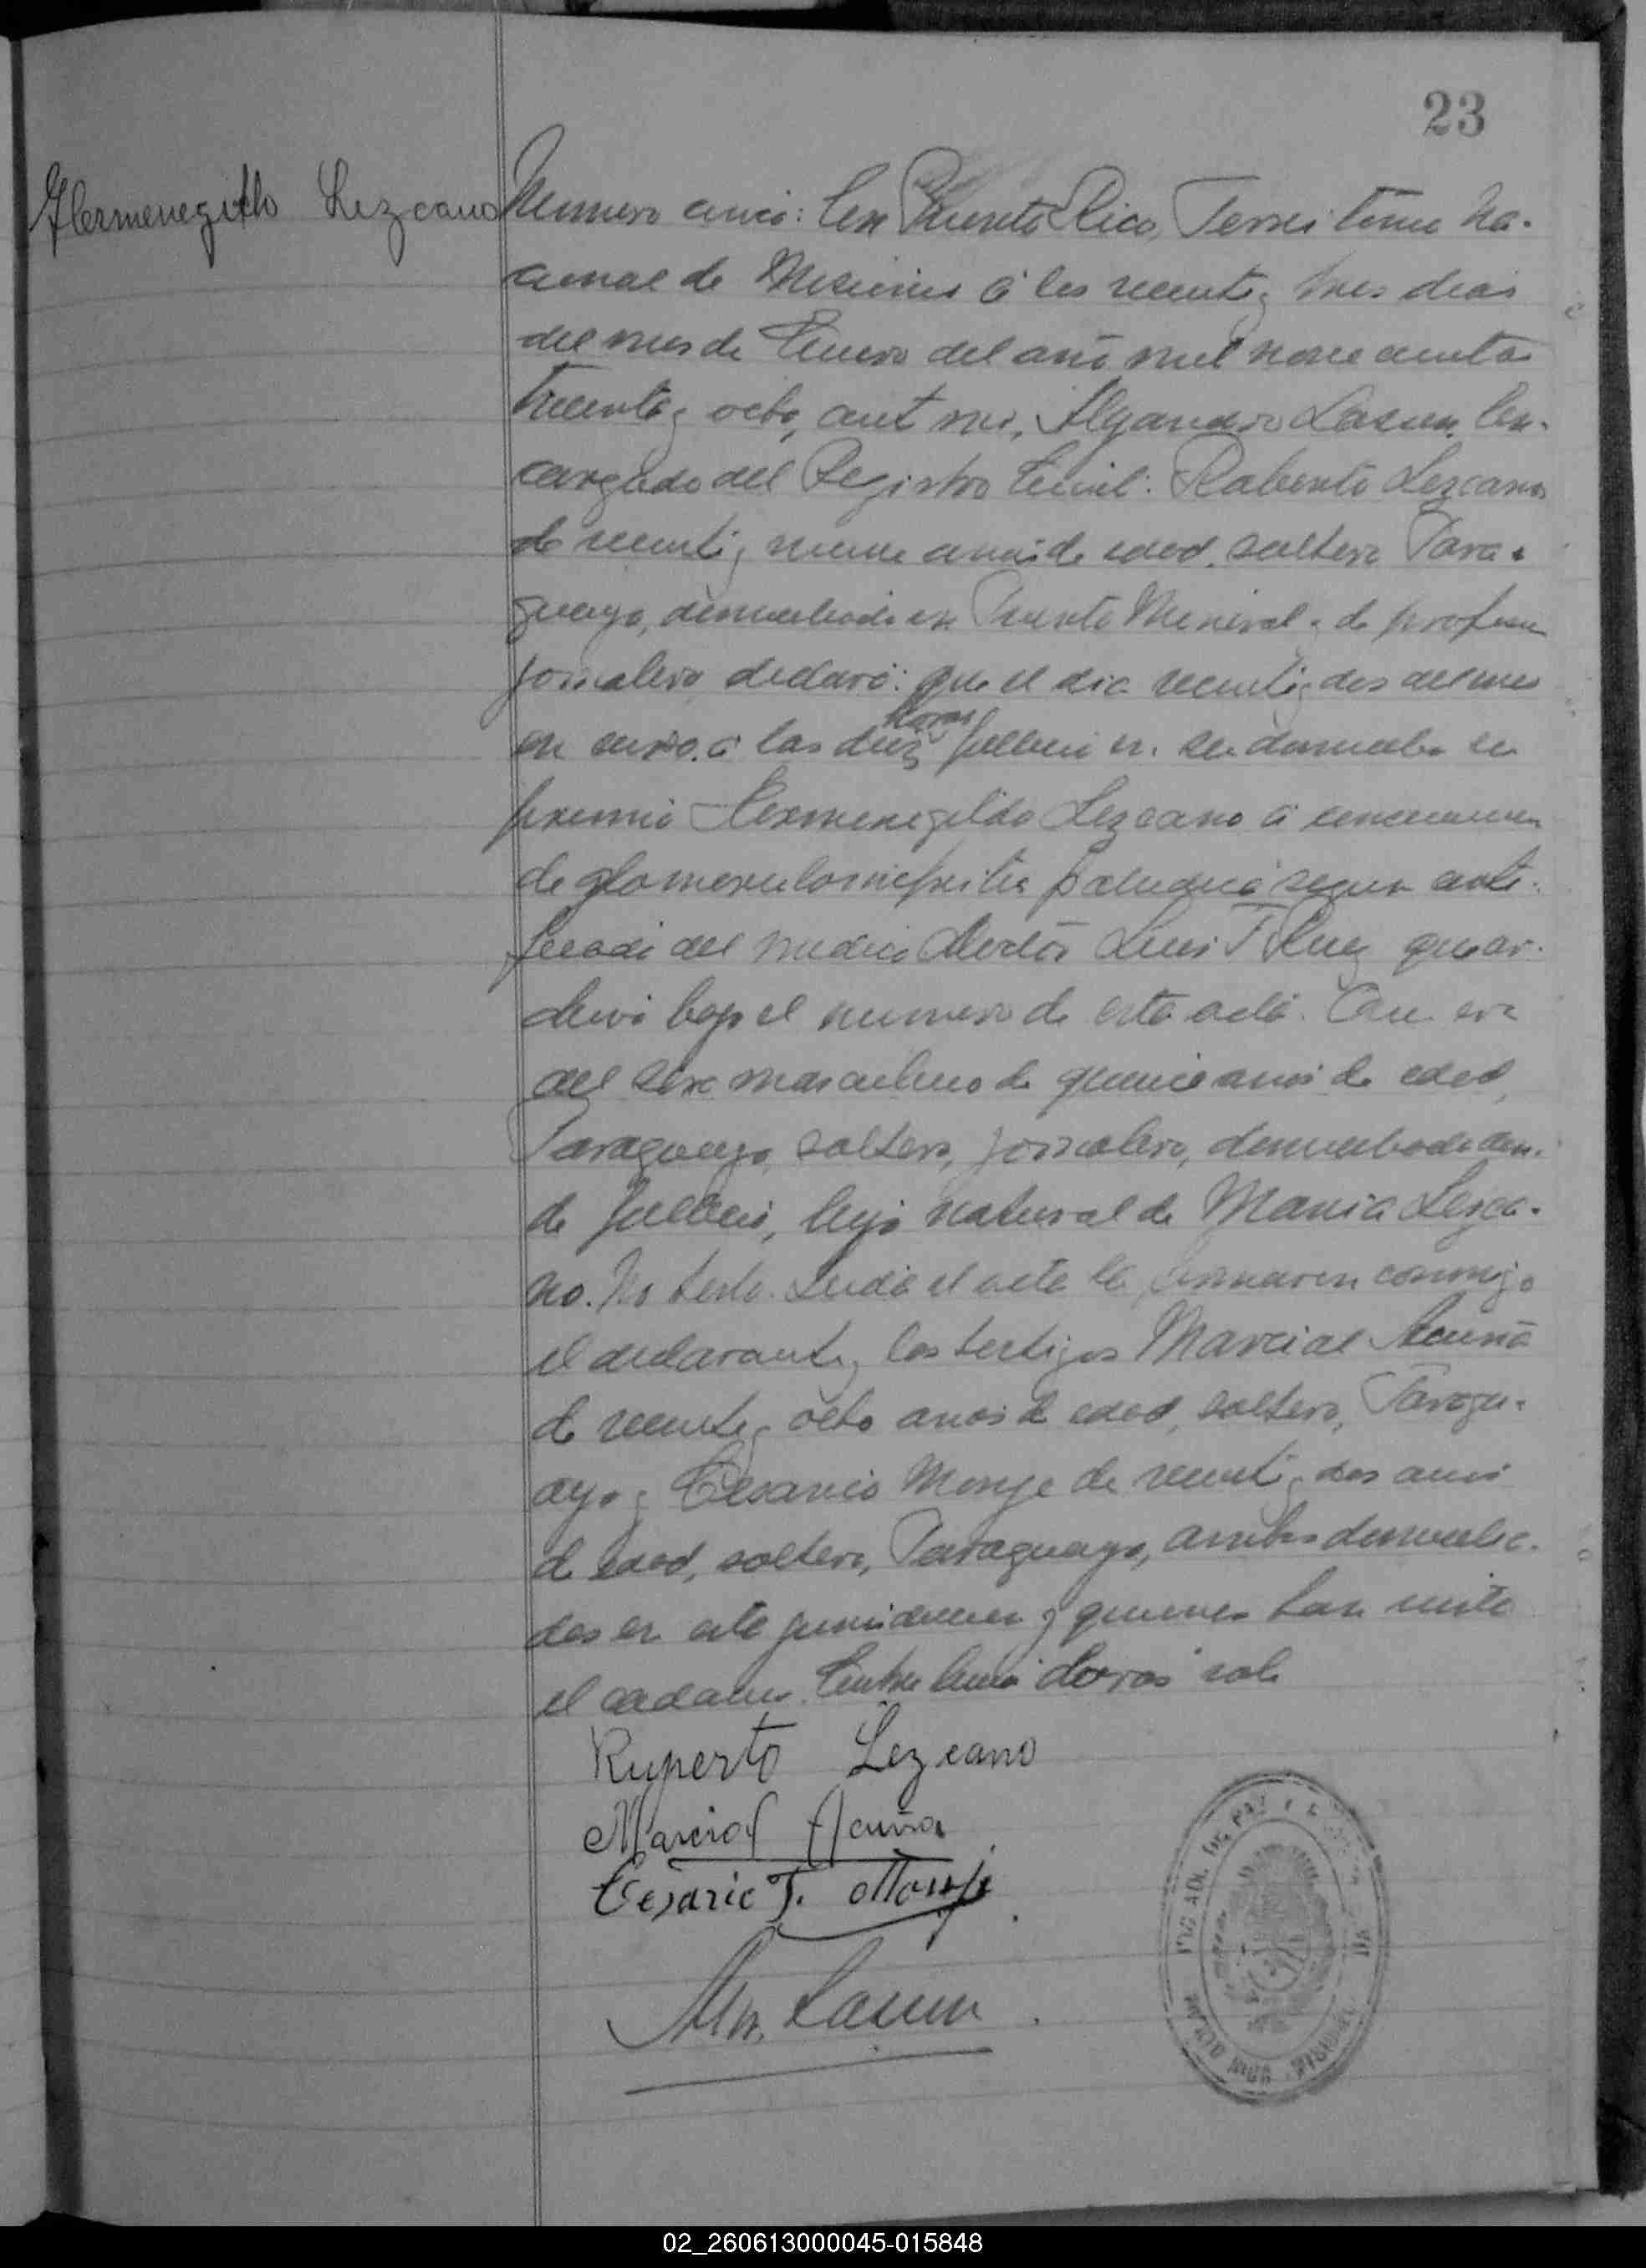 23
Hermenegildo Lezcano
Numero cinco: En Puerto Rico, Territorio Na-
cional de Misiones á los veinte y tres dias
del mes de Enero del año mil novecientos
treinta y ocho, ante mi, Alejandro Lasum En-
cargado del Registro Civil: Roberto Lezcano
de veinte y nueve años de edad, soltero Para-
guayo, domiciliado en Puerto Mineral, de profesion
jornalero declaró: que el dia veinte y dos del mes
en curso á las diez horas fallecio en su domicilio
Hermenegildo Lezcano á consecuencia
de glomerulonefritis paludica segun certi-
ficado del medico Doctor Luis F Ruez que ar-
chivo bajo el numero de esta acta. Que era
del sexo masculino de quince años de edad,
Paraguayo, soltero, jornalero, domiciliado don-
de fallecio, hijo natural de Maria Lezca-
no. No testó. Leida el acta la firmaron conmigo
el declarante y los testigos Marcial Acuña
de veinte y ocho años de edad, soltero, Paragu-
ayo y Cesario Monje de veinte y dos años
de edad, soltero, Paraguayo, ambos domicilia-
dos en esta jurisdiccion y quienes han visto
el cadaver. Entre linea horas vale
Ruperto Lezcano
Marcial Acuña
Cesario T. Monje
Lasum
02_260613000045-015848